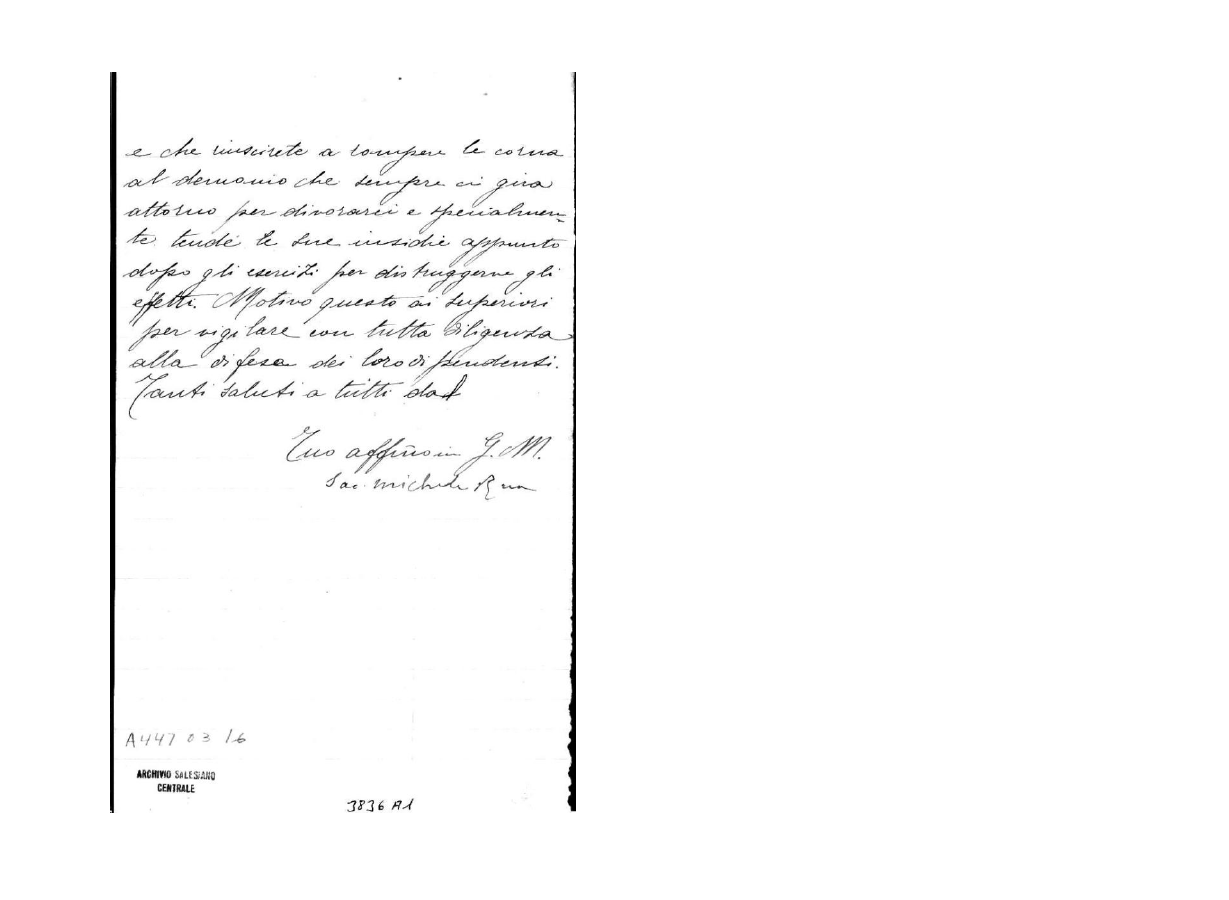 e che riuscirete a rompere le corna
al demonio che sempre ci gira
attorno per divorarci e specialmen-
te tende le sue insidie appunto
dopo gli esercizi per distruggerne gli
effetti. Motivo questo ai superiori
per vigilare con tutta diligenza
alla difesa dei loro dipendenti.
Tanti saluti a tutti dal
Tuo affmo in G. M.
Sac. Michele Rua
A447 03 16
ARCHIVIO SALESIANO
CENTRALE
3836 A1